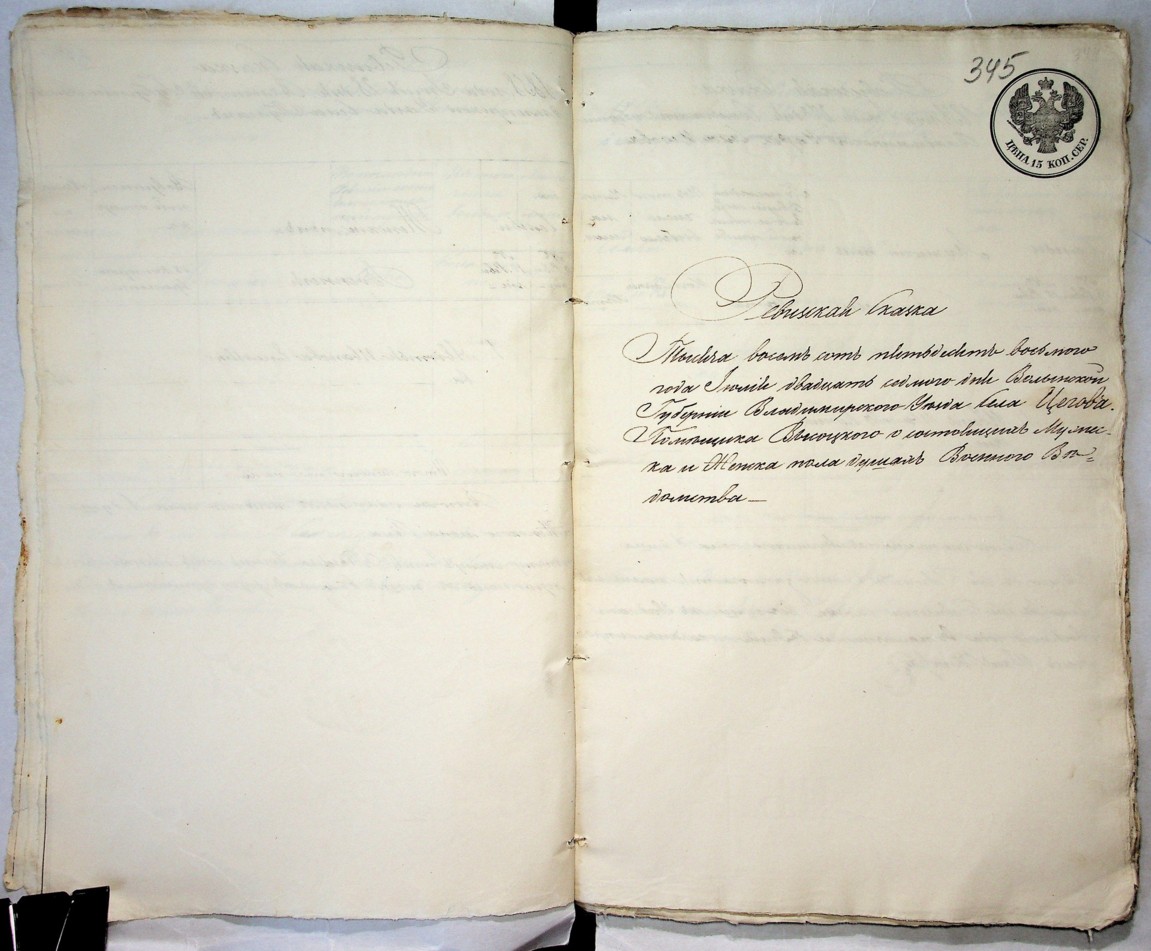 345
ЦѢНА 15 КОП. СЕР.
Ревизская Сказка
Тысяча восемь сотъ пятьдесятъ восьмого
года Іюля двадцать седмого дня Волынской
Губерніи Владимирского Уезда села Цегова.
Помѣщика Высоцкого о состоящихъ Мужес-
ка и Женска пола душахъ Военного Вѣ-
домства —